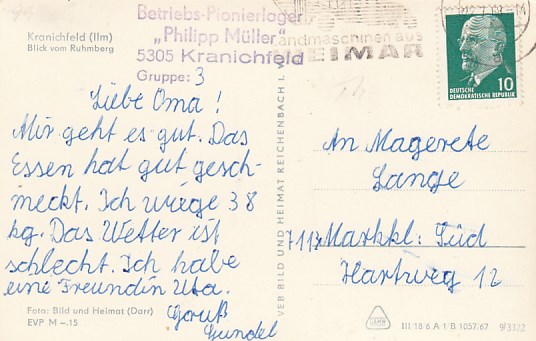 Kranichfeld (Ilm)
Blick vom Ruhmberg
Betriebs-Pionierlager
„Philipp Müller"
5305 Kranichfeld
Gruppe: 3
Landmaschinen aus
WEIMAR
10
DEUTSCHE
DEMOKRATISCHE REPUBLIK
Liebe Oma!
Mir geht es gut. Das
Essen hat gut gesch-
meckt. Ich wiege 38
kg. Das Wetter ist
schlecht. Ich habe
eine Freundin Uta.
Goruß
Gundel
An Magerete
Lange
7113 Markkl: Süd
Hartweg 12
VEB BILD UND HEIMAT REICHENBACH I. V.
Foto: Bild und Heimat (Darr)
EVP M –.15
III 18 6 A 1 B 1057/67
9/3322